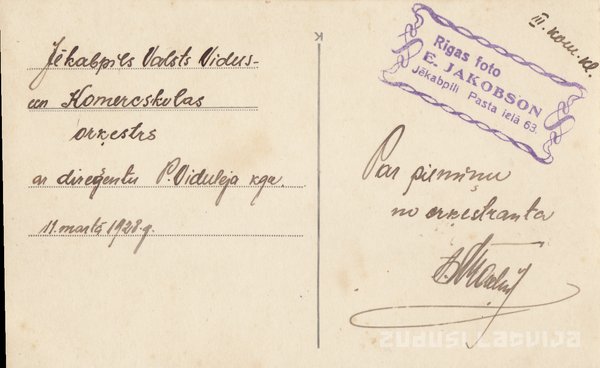 Jēkabpils Valsts Vidus-
un Komercskolas
orķestrs
ar diriģentu P. Viduleja kgu.
11. martā 1928. g.
III. kom. kl.
Rigas foto
E. JAKOBSON
Jēkabpilī Pasta ielā 63.
Par piemiņu
no orķestranta
ZUDUSĪ LATVIJA